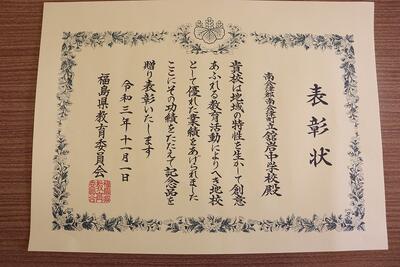 表彰状
南会津郡南会津町立舘岩中学校殿
貴校は地域の特性を生かして創意
あふれる教育活動によりへき地校
として優れた業績をあげられました
ここにその功績をたたえて記念品を
贈り表彰いたします
令和三年十一月一日
福島県教育委員会